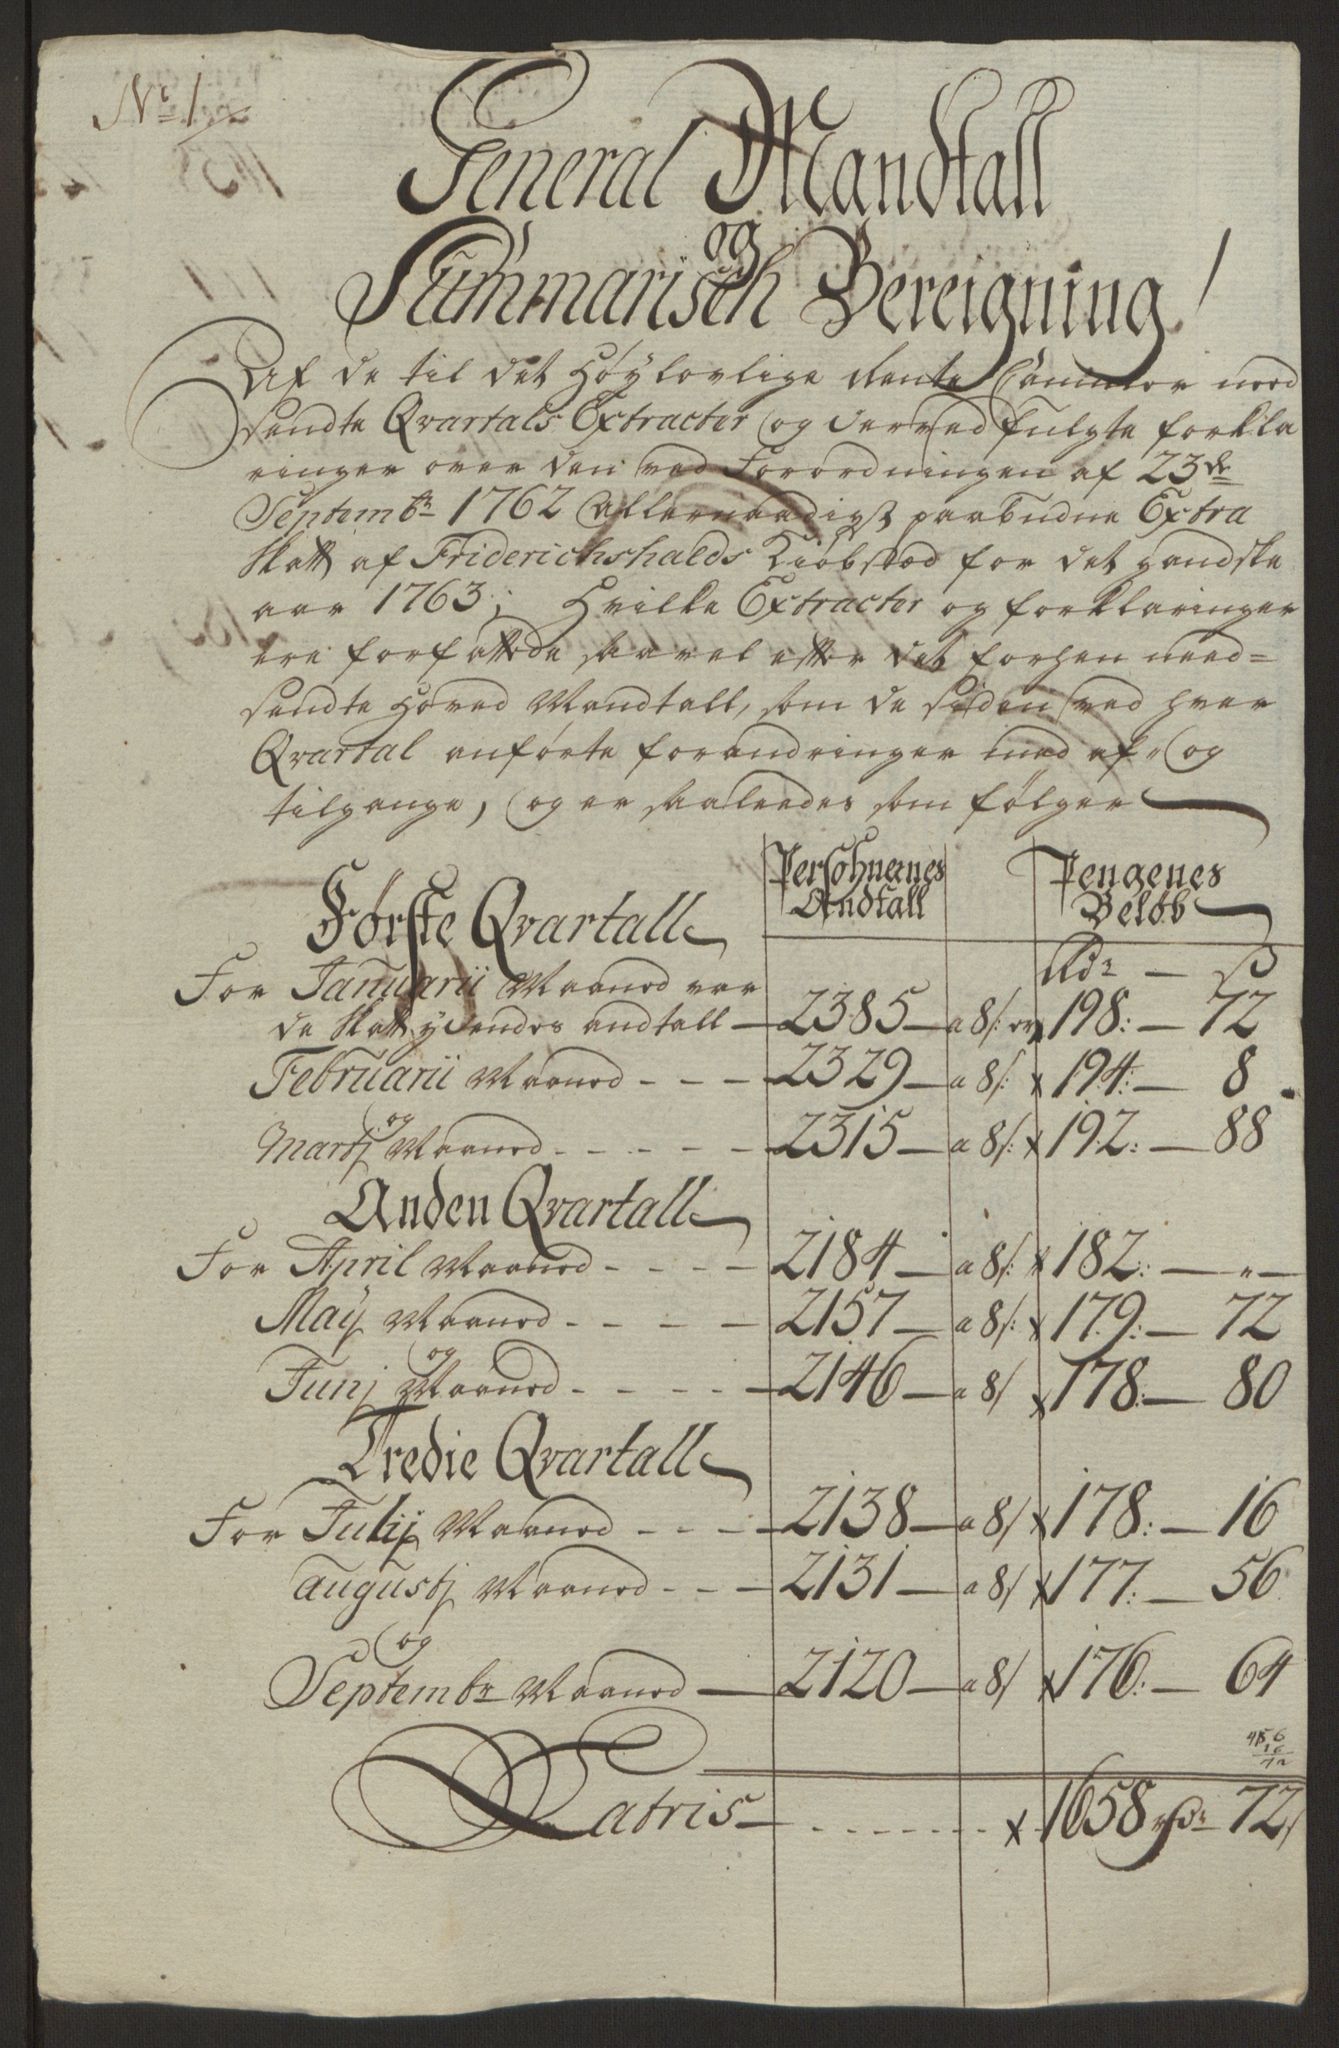 No 1
General Mandtall
og
Summarisch Bereigning
Af de til det Høylovlige Rente Cammer ned
sendte Qvartals Extracter og derved fulgte forkla
ringer over den ved Forordningen af 23de
Septembr 1762 allernaadigst paabudne Extra
Skatt af Friderichshalds Kiøbstæd for det gandske
aar 1763; Hvilke Extracter og forklaringer
ere forfattede saavel efter det forhen need=
sendte Hoved Mandtall, som de siden ved hver
Qvartal anførte forandringer med af- og
tilgange, og er saaleedes som følger
Persohnernes Andtall
Pengenes Beløb
Første Qvartall
Rdr — s
For Januarii Maaned var
de Skattydendes andtall — 2385 — a 8s: er 198: — 72
Februarii Maaned - - - 2329 — a 8s: 194: — 8
og
Martj Maaned - - - - - 2315 — a 8s: 192: — 88
Anden Qvartall
For April Maaned - - - - 2184 — a 8s: 182: — „ —
Maij Maaned - - - - 2157 — a 8s: 179: — 72
og
Junj Maaned - - - - - 2146 — a 8s 178: — 80
Tredie Qvartall
For Julij Maaned - - - - 2138 — a 8s 178: — 16
Augustj Maaned - - - 2131 — a 8s 177: — 56
og
Septembr Maaned — 2120 — a 8s 176: — 64
Latris — - - - - - - - 1658 rdr 72s